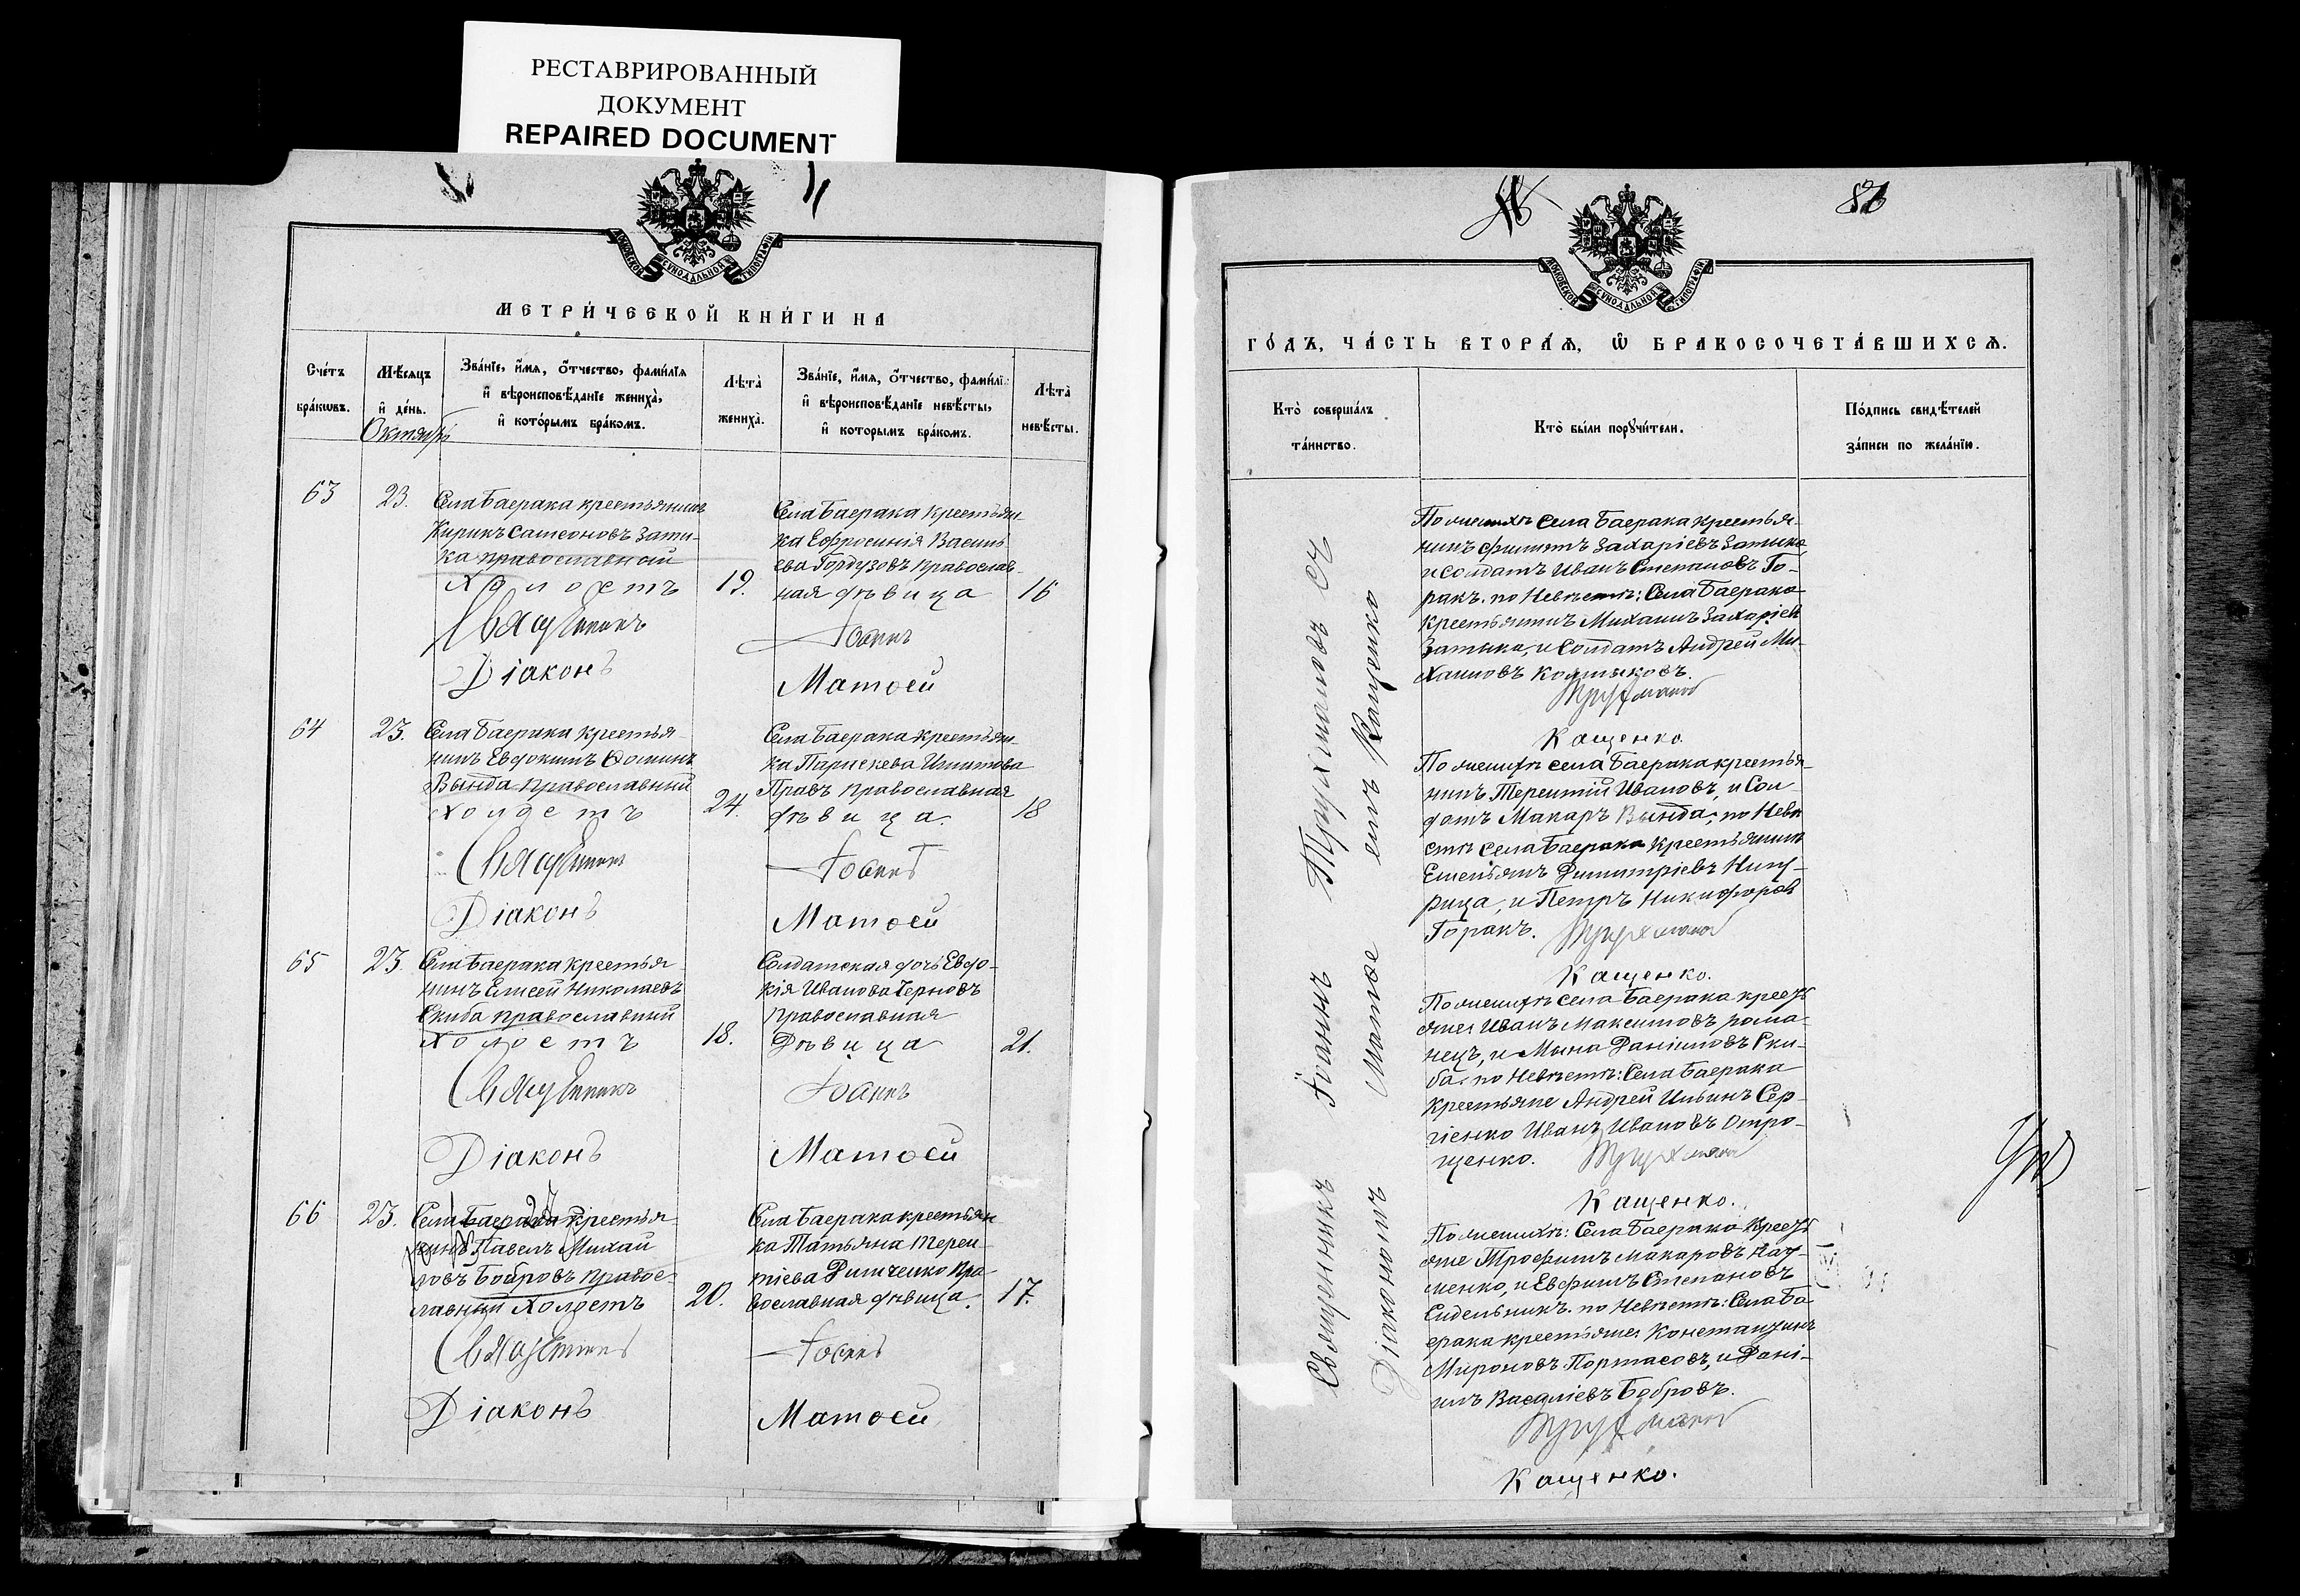 РЕСТАВРИРОВАННЫЙ
ДОКУМЕНТ
REPAIRED DOCUMENT
МОСКОВСКОЙ СѴНОДАЛЬНОЙ ТИПОГРАФІИ
МЕТРИ́ЧЕСКОЙ КНИ́ГИ НА
Сче́тъ бра́кѡвъ.
Мѣ́сяцъ и҆ де́нь.
Октябрь
Зва́нїе, и҆́мя, ѻ҆́тчество, фами́лїя
и҆ вѣроисповѣ́данїе жениха̀,
и҆ кото́рымъ бра́комъ.
Лѣта̀ жениха̀.
Зва́нїе, и҆́мя, ѻ҆́тчество, фами́лї
и҆ вѣроисповѣ́данїе невѣ́сты,
и҆ которымъ бра́комъ.
Лѣта̀ невѣ́сты.
63
23.
Села Баерака крестьянинъ
Кирикъ Самсоновъ Зати-
ка православный
холостъ
19.
Села Баерака крестьян-
ка Ефросинія Василь
ева Гордузовъ православ-
ная дѣвица
16
Священникъ
Іоаннъ
Діаконъ
Матѳей
64
23.
Села Баерака крестья-
нинъ Евдокимъ Ѳоминъ
Вында православный
холостъ
24.
Села Баерака крестьян-
ка Параскева Игнатова
православная
дѣвица.
18
Священникъ
Іоаннъ
Діаконъ
Матѳей
65
23.
Села Баерака крестья-
нинъ Елисей Николаевъ
Скиба православный
холостъ
18.
Солдатская дочь Евдо-
кія Иванова Черновъ
православная
Дѣвица
21.
Священникъ
Іоаннъ
Діаконъ
Матѳей
66
23.
Села Баерака крестья-
нинъ Павелъ Михай
ловъ Бобровъ правос-
лавный холостъ
20.
Села Баерака крестьян
ка Татьяна Терен-
тіева Димченко пра-
вославная дѣвица.
17.
Священникъ
Іоаннъ
Діаконъ
Матѳей
МОСКОВСКОЙ СѴНОДАЛЬНОЙ ТИПОГРАФІИ
ГО́ДЪ, ЧА́СТЬ ВТОРА́Ѧ, Ѡ҆ БРАКОСОЧЕТА́ВШИХСѦ.
Кто̀ соверша́лъ
та́инство.
Кто̀ бы́ли порꙋчи́тели.
По́дпись свидѣ́телей
за́писи по жела́нїю.
Священникъ Іоаннъ Трухмановъ съ
Діакономъ Матѳеемъ Кащенко
По женихѣ села Баерака крестья-
нинъ Филиппъ Захаріевъ Затика,
и солдатъ Иванъ Степановъ Го-
ракъ. по Невѣстѣ: Села Баерака
крестьянинъ Михаилъ Захаріев
Затика, и Солдатъ Андрей Ми-
хаиловъ Колтыковъ.
Трухманов
Кащенко.
По женихѣ села Баерака крестья-
нинъ Терентій Ивановъ, и Сол-
датъ Макаръ Вында; по Невѣ
стѣ села Баерака крестьянинъ
Емельянъ Димитріевъ
и Петръ Никифоров
Горакъ.
Трухманов
Кащенко.
По женихѣ села Баерака крест
яне Иванъ Максимовъ рома-
нецъ, и Мына Даніиловъ Ски-
ба. по Невѣстѣ: Села Баерака
крестьяне Андрей Ильинъ Сер-
гіенко Иванъ Ивановъ Отро-
щенко.
Трухманов
Кащенко.
По женихѣ: Села Баерака крест
яне Трофимъ Макаровъ Нау-
менко, и Евфимъ Степановъ
Сидельникъ. по Невѣстѣ: Села Ба
ерака крестьяне Константинъ
Мироновъ Портасовъ, и Дані-
илъ Василіевъ Бобровъ.
Трухманов
Кащенко.